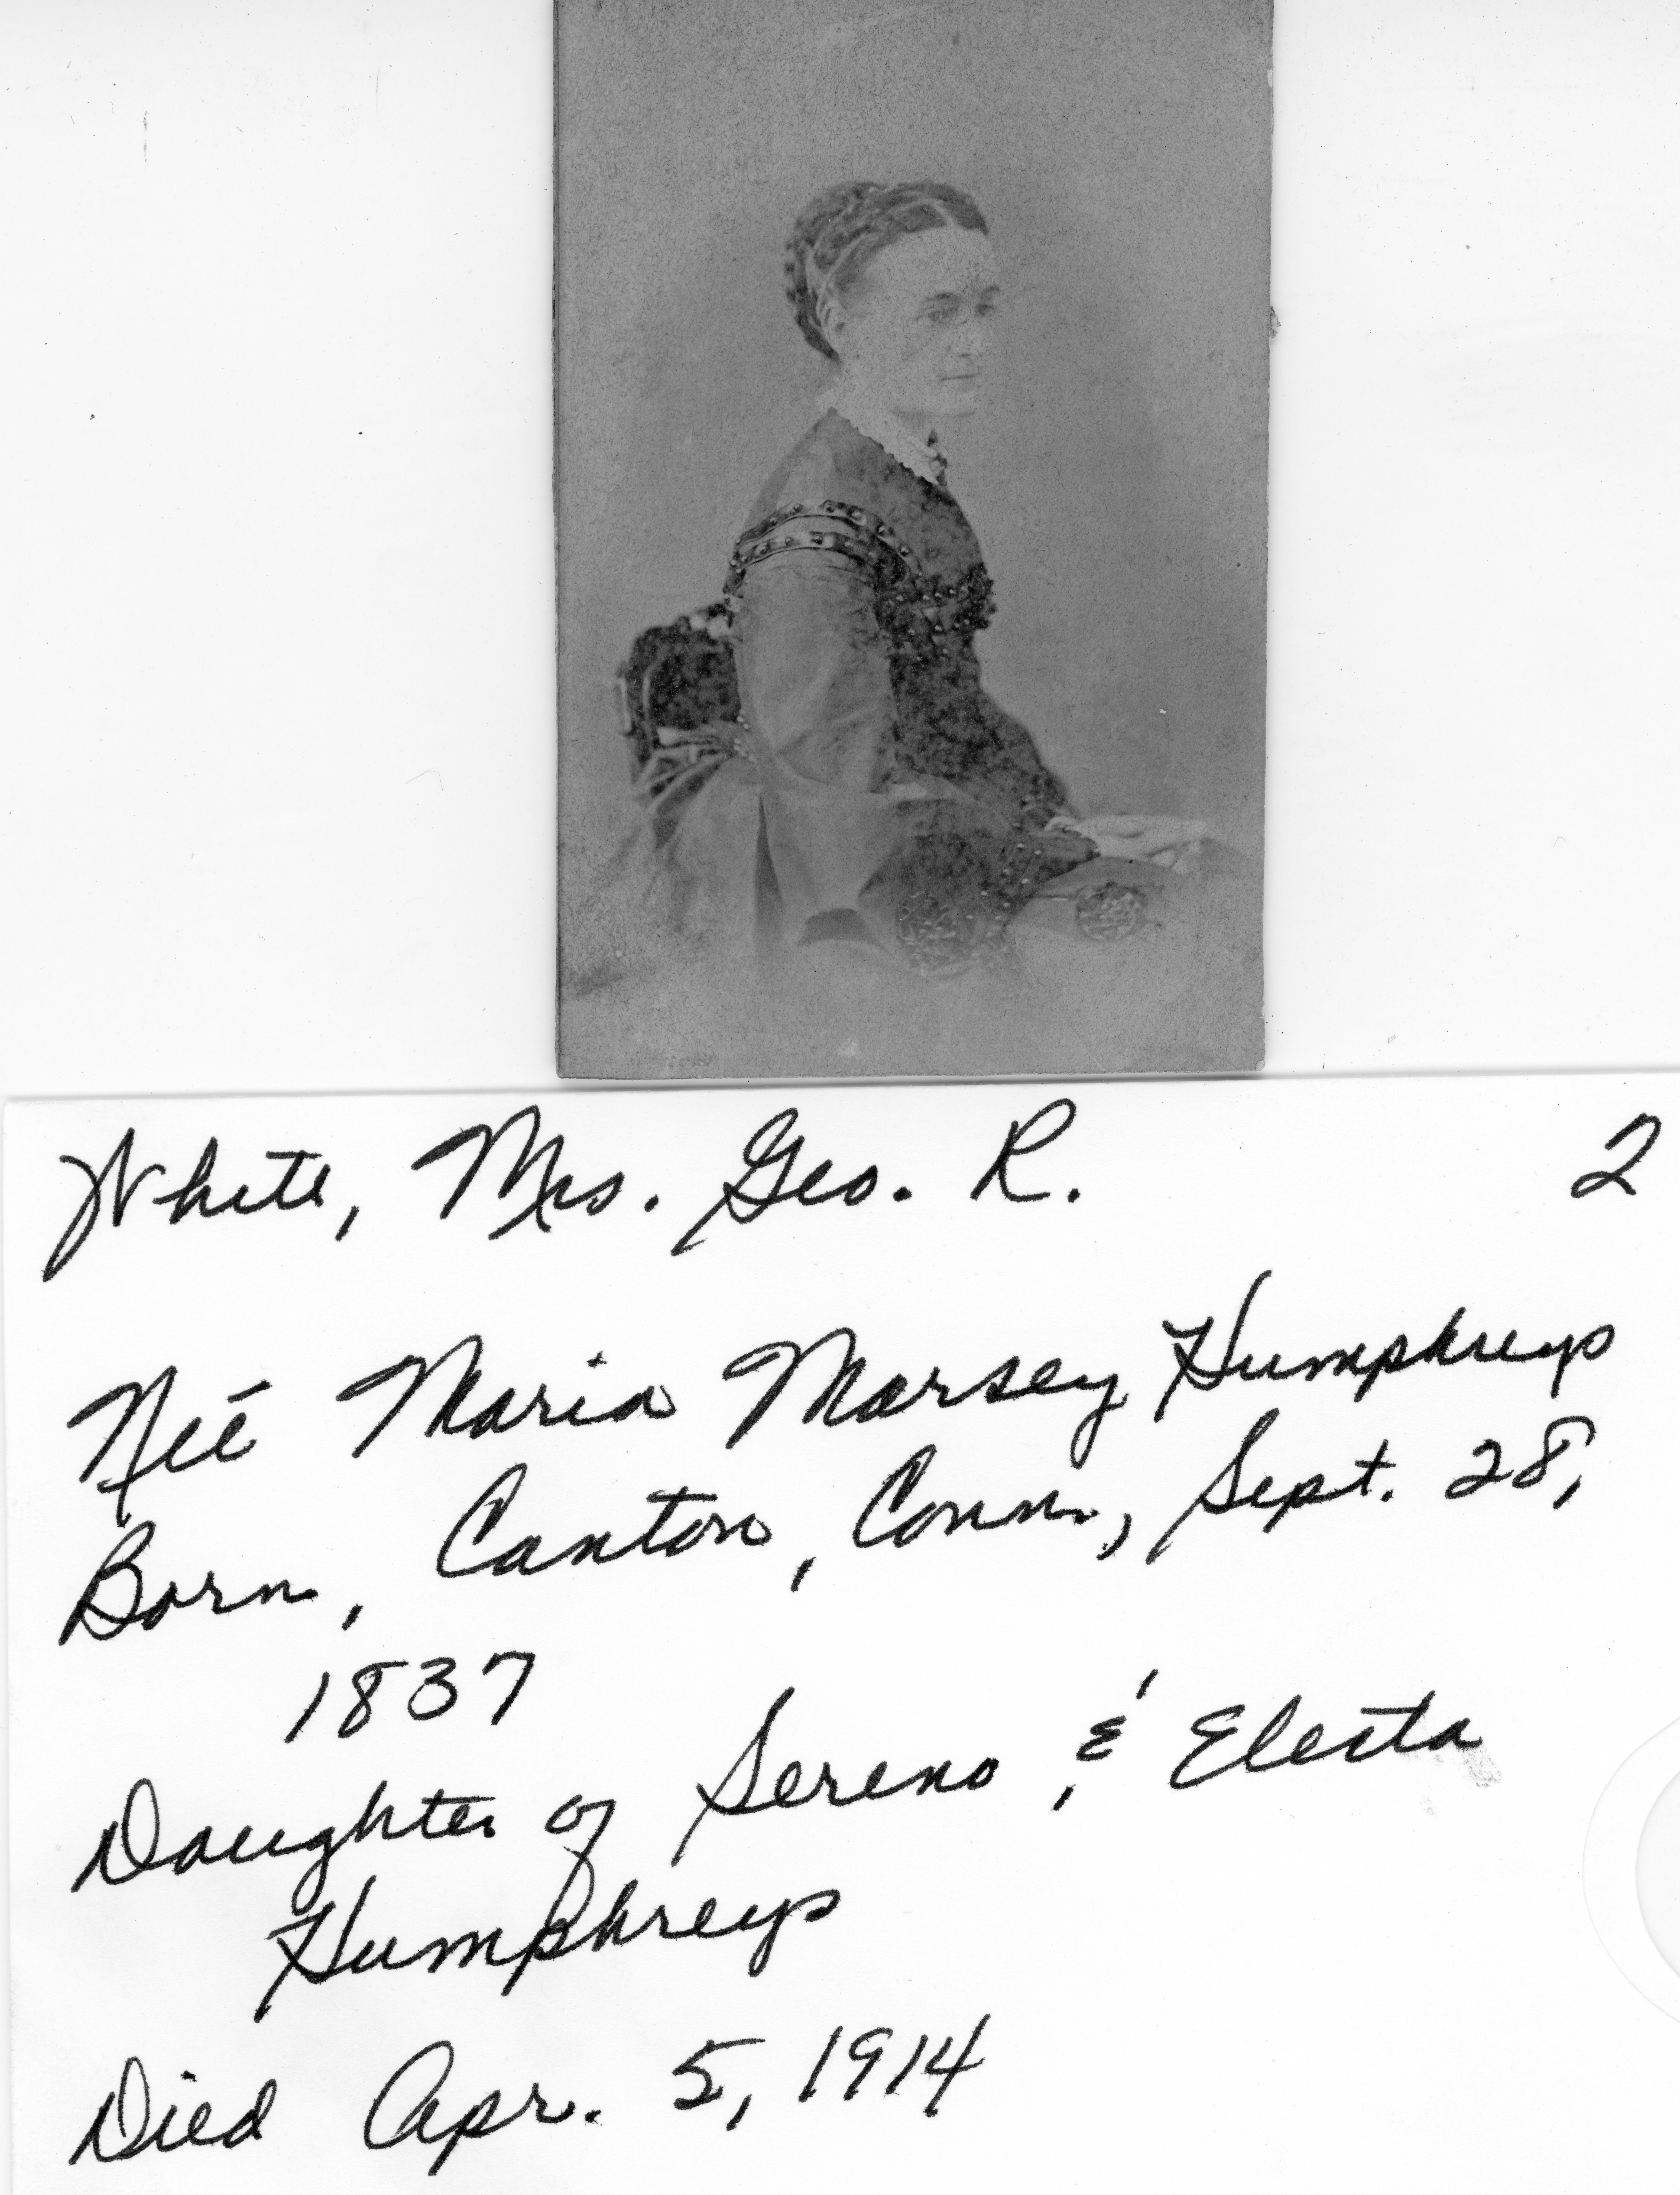 White, Mrs. Geo. R. 2
Neé Maria Marsey Humphreys
Born, Canton, Conn., Sept. 28,
1837
Daughter of Sereno & Electa
Humphreys
Died Apr. 5, 1914